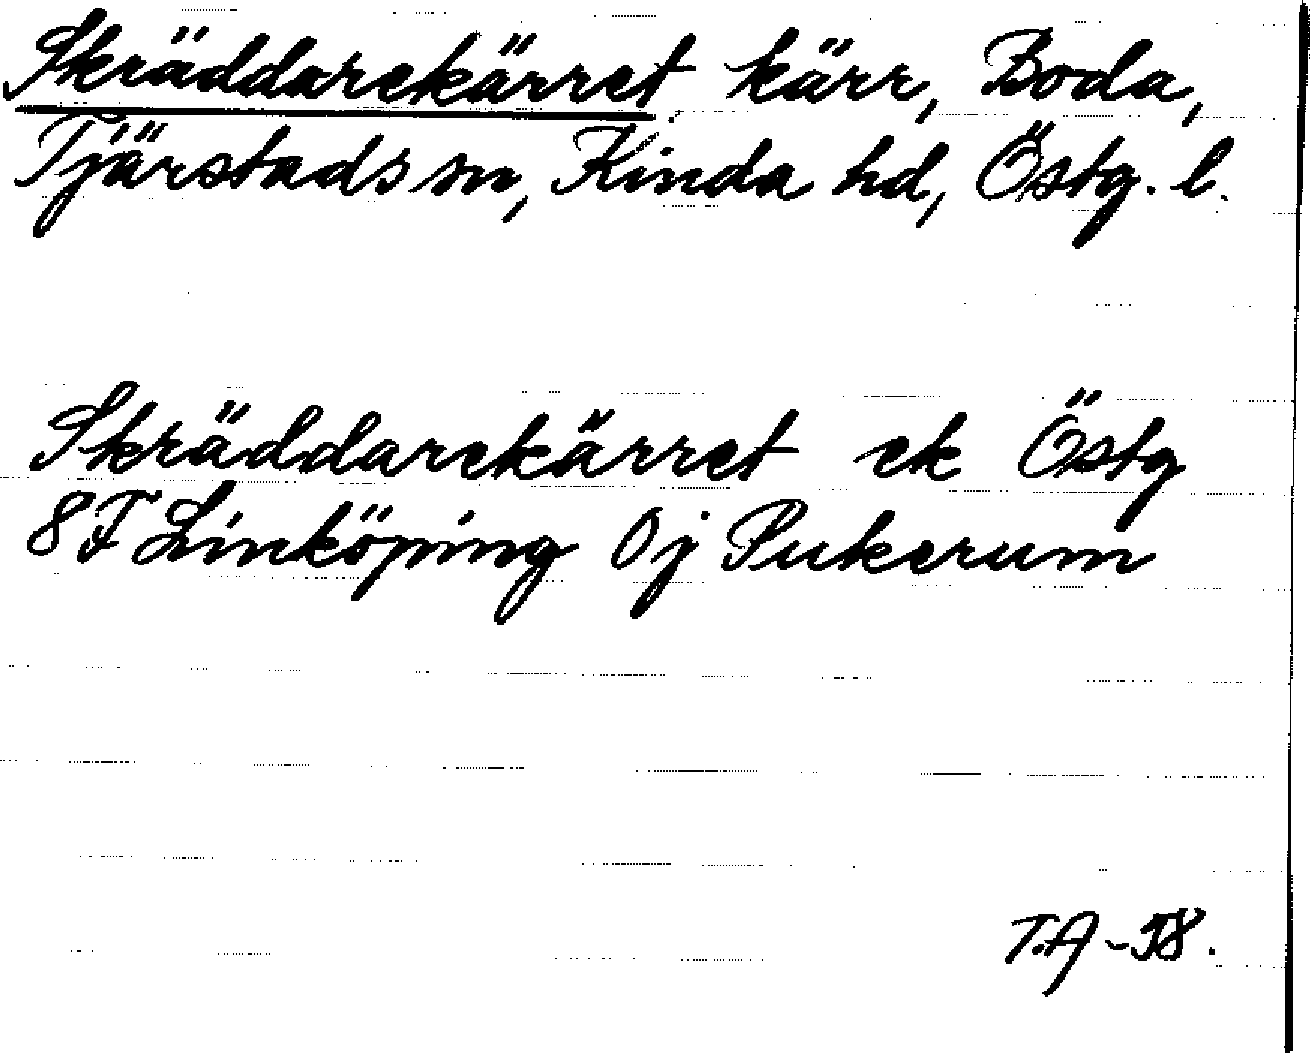 Skräddarekärret kärr, Boda,
Tjärstads sn, Kinda hd, Östg. l.
Skräddarekärret ek Östg
8F Linköping 0j Pukerum
T.A -58.